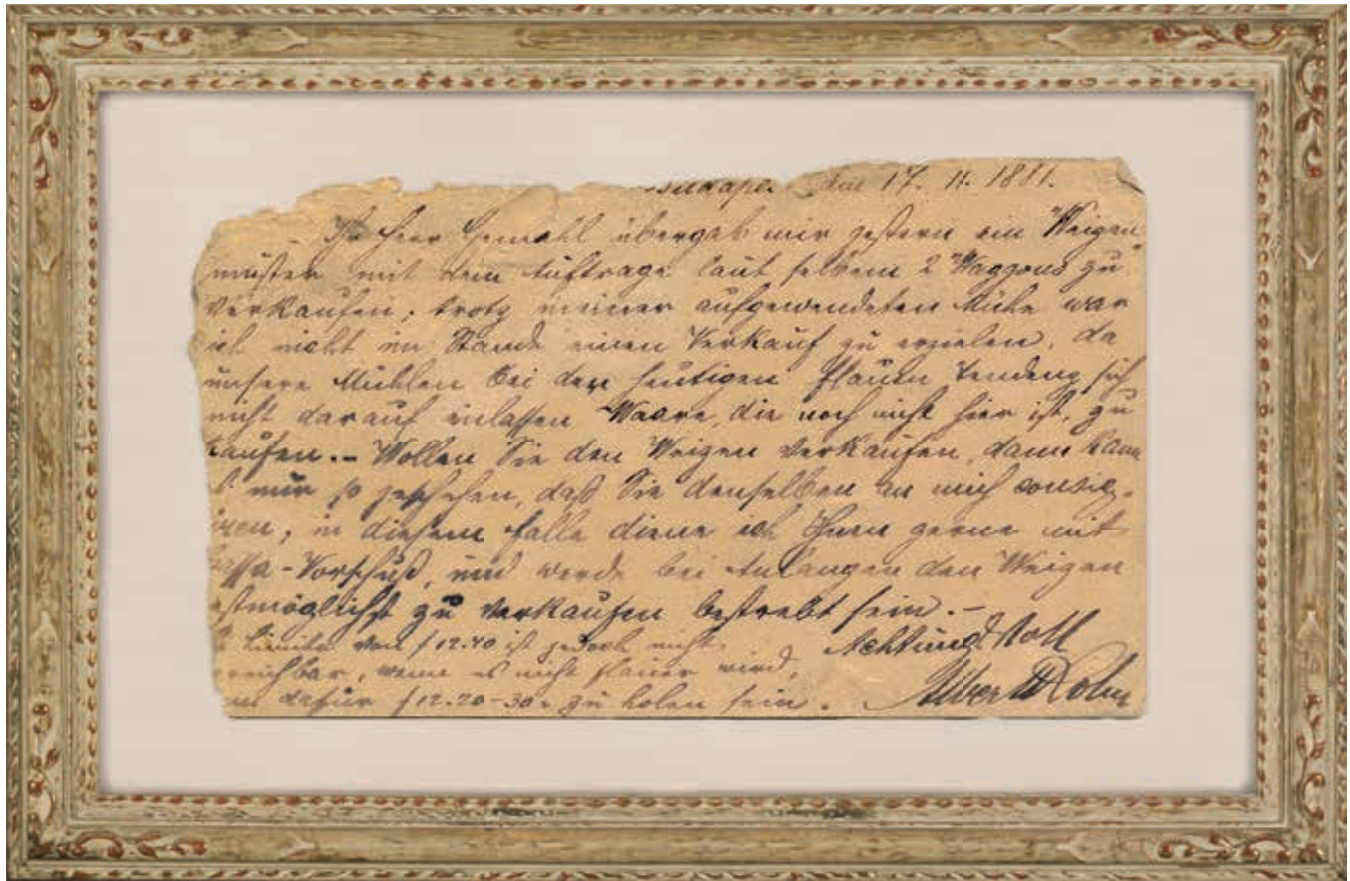 den 17. 11. 1881.
Ihr Herr Gemahl übergab mir gestern ein Weizen
muster mit dem Auftrage laut selbem 2 Waggons zu
verkaufen; trotz meiner aufgewendeten Mühe war
ich nicht im Stande einen Verkauf zu erzielen, da
unsere Mühlen bei der heutigen flauen Tendenz sich
nicht darauf einlassen Waare, die noch nicht hier ist, zu
kaufen. – Wollen Sie den Weizen verkaufen, dann kann
nur so geschehen, daß Sie denselben an mich consig-
iren, in diesem Falle diene ich Ihnen gerne mit
assa-Vorschuß, und werde bei Anlangen den Weizen
estmöglichst zu verkaufen bestrebt sein. –
Limite von f 12.40 ist jedoch nicht
reichbar, wenn es nicht flauer wird,
dafür f 12.20–30. zu holen sein.
Achtungsvoll
Albert